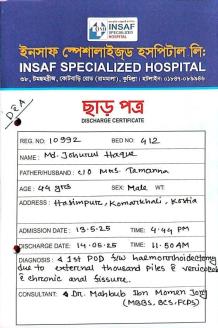 INSAF
SPECIALIZED
HOSPITAL
ইনসাফ স্পেশালাইজড হসপিটাল লি:
INSAF SPECIALIZED HOSPITAL
DEA
ছাড় পত্র
DISCHARGE CERTIFICATE
REG. NO: 10992 BED NO: 412
NAME: Md. Johurul Haque
FATHER/HUSBAND: C/O Mrs. Tamanna
AGE: 44 yrs SEX: Male WT:
ADDRESS: Hasimpur, Komarkhali, Kostia
ADMISSION DATE: 13-5-25 4:44 PM
DISCHARGE DATE: 14-05-25 11:50 AM
DIAGNOSIS: 1st POD f/w haemorrhoidectomy
due to external thousand piles
& chronic anal fissure.
CONSULTANT: Dr. Mahbub Ibn Momen
(MBBS, BCS, FCPS)